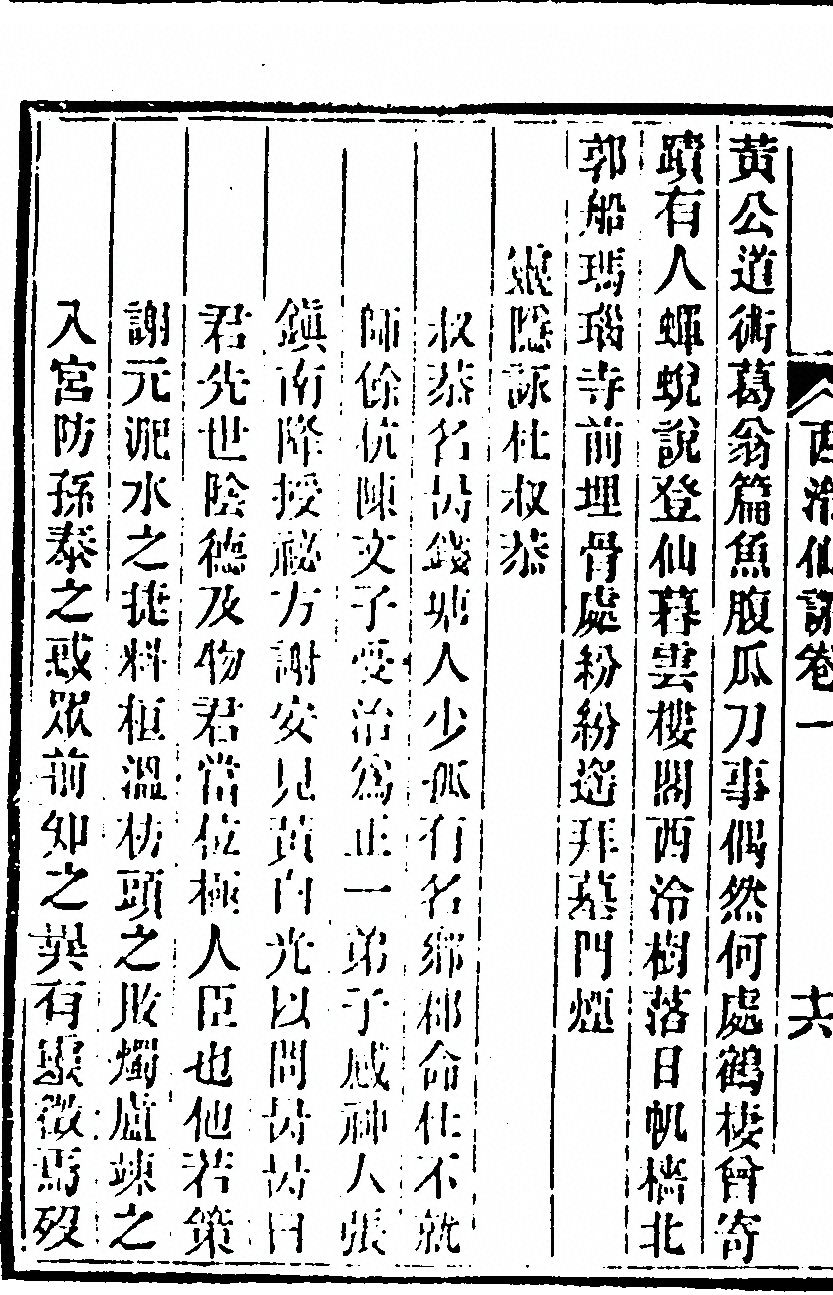 西泠仙詠卷一 十六
黃公道術葛翁篇魚腹瓜刀事偶然何處鶴棲曾寄
蹟有人蟬蛻說登仙暮雲樓閣西泠樹落日帆檣北
郭船瑪瑙寺前埋骨處紛紛遙拜墓門煙
靈隱詠杜叔恭
叔恭名昺錢塘人少孤有名鄉郡命仕不就
師餘杭陳文子受治爲正一弟子感神人張
鎮南降授祕方謝安見黃白光以問昺昺曰
君先世陰德及物君當位極人臣也他若策
謝元淝水之捷料桓溫枋頭之敗燭盧竦之
入宮防孫泰之惑眾前知之異有靈徵焉歿